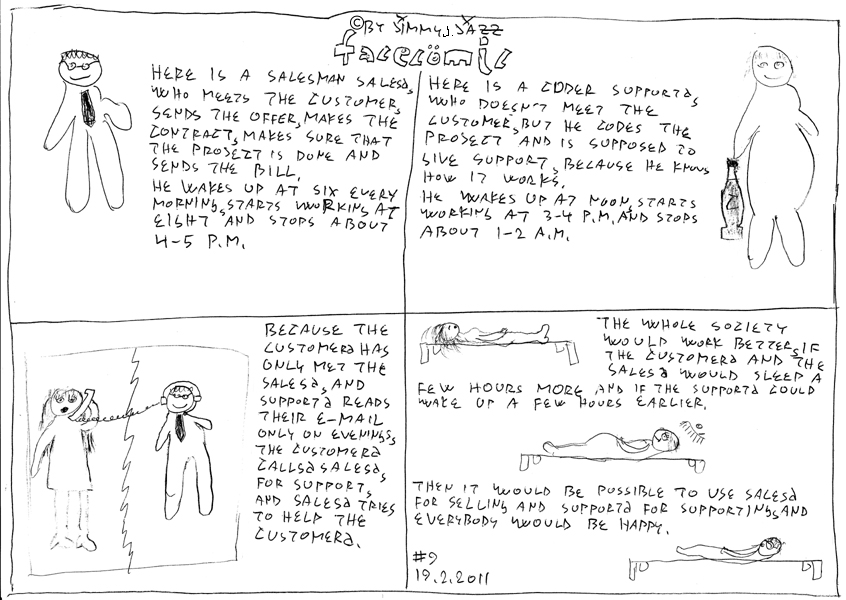 ©BY JIMMY J. JAZZ
facecömic
HERE IS A SALESMAN SALESA,
WHO MEETS THE CUSTOMER,
SENDS THE OFFER, MAKES THE
CONTRACT, MAKES SURE THAT
THE PROJECT IS DONE AND
SENDS THE BILL.
HE WAKES UP AT SIX EVERY
MORNING, STARTS WORKING AT
EIGHT, AND STOPS ABOUT
4-5 P.M.
HERE IS A CODER SUPPORTA,
WHO DOESN'T MEET THE
CUSTOMER, BUT HE CODES THE
PROJECT AND IS SUPPOSED TO
GIVE SUPPORT, BECAUSE HE KNOWS
HOW IT WORKS.
HE WAKES UP AT NOON, STARTS
WORKING AT 3-4 P.M. AND STOPS
ABOUT 1-2 A.M.
BECAUSE THE
CUSTOMERA HAS
ONLY MET THE
SALESA, AND
SUPPORTA READS
THEIR E-MAIL
ONLY ON EVENINGS,
THE CUSTOMERA
CALLSA SALESA,
FOR SUPPORT,
AND SALESA TRIES
TO HELP THE
CUSTOMERA.
THE WHOLE SOCIETY
WOULD WORK BETTER, IF
THE CUSTOMERA AND THE
SALESA WOULD SLEEP A
FEW HOURS MORE, AND IF THE SUPPORTA COULD
WAKE UP A FEW HOURS EARLIER.
THEN IT WOULD BE POSSIBLE TO USE SALESA
FOR SELLING AND SUPPORTA FOR SUPPORTING, AND
EVERYBODY WOULD BE HAPPY.
#9
19.2.2011